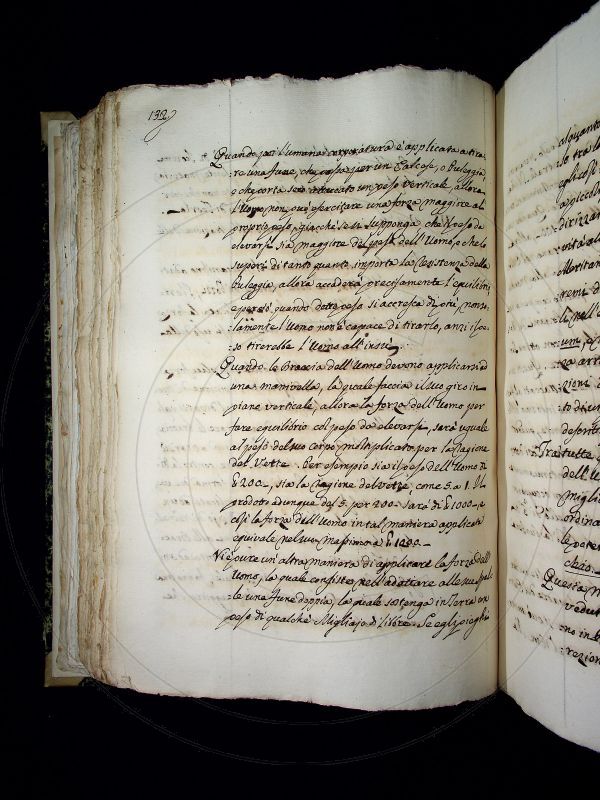 132
Quando poi l'umana corporatura è applicata a tira-
re una fune, che passa per un Calcese, o Puleggia,
o che porta seco attaccato un peso verticale, allora
l'Uomo non può esercitare una forza maggiore al
proprio peso, giacché se si supponga che il peso da
elevarsi sia maggiore del peso dell'Uomo, e che lo
superi di tanto quanto importa la resistenza della
Puleggia, allora accaderà precisamente l'equilibrio
e però quando detto peso si accresca di più, non so-
lamente l'Uomo non è capace di tirarlo, anzi il pe-
so tirerebbe l'Uomo all'insù.
Quando le Braccia dell'Uomo devono applicarsi a
una manivella, la quale faccia il suo giro in
piano verticale, allora la forza dell'Uomo per
fare equilibrio col peso da elevarsi, sarà uguale
al peso del suo corpo moltiplicato per la ragione
del Vette. Per esempio sia il peso dell'Uomo di
₤ 200, sia la ragione del vette, come 5. a 1. Il
prodotto adunque del 5. per 200. sarà di ₤ 1000., e
così la forza dell'Uomo in tal maniera applicata
equivale nel suo massimo a ₤ 1000.
Vi è pure un'altra maniera di applicare la forza dell'
Uomo, la quale consiste nell'adattare alle sue spal-
le una fune doppia, la quale sostenga in Terra un
peso di qualche Migliajo di Libbre. Se egli pieghi
alquanto
so tre lo
applicati
appiccol
dirizzar
vita al
tremi d
Tra tutte
dell'U
miglio
ordina
le poten
chio.
Questa m
vedut
no in
rezion